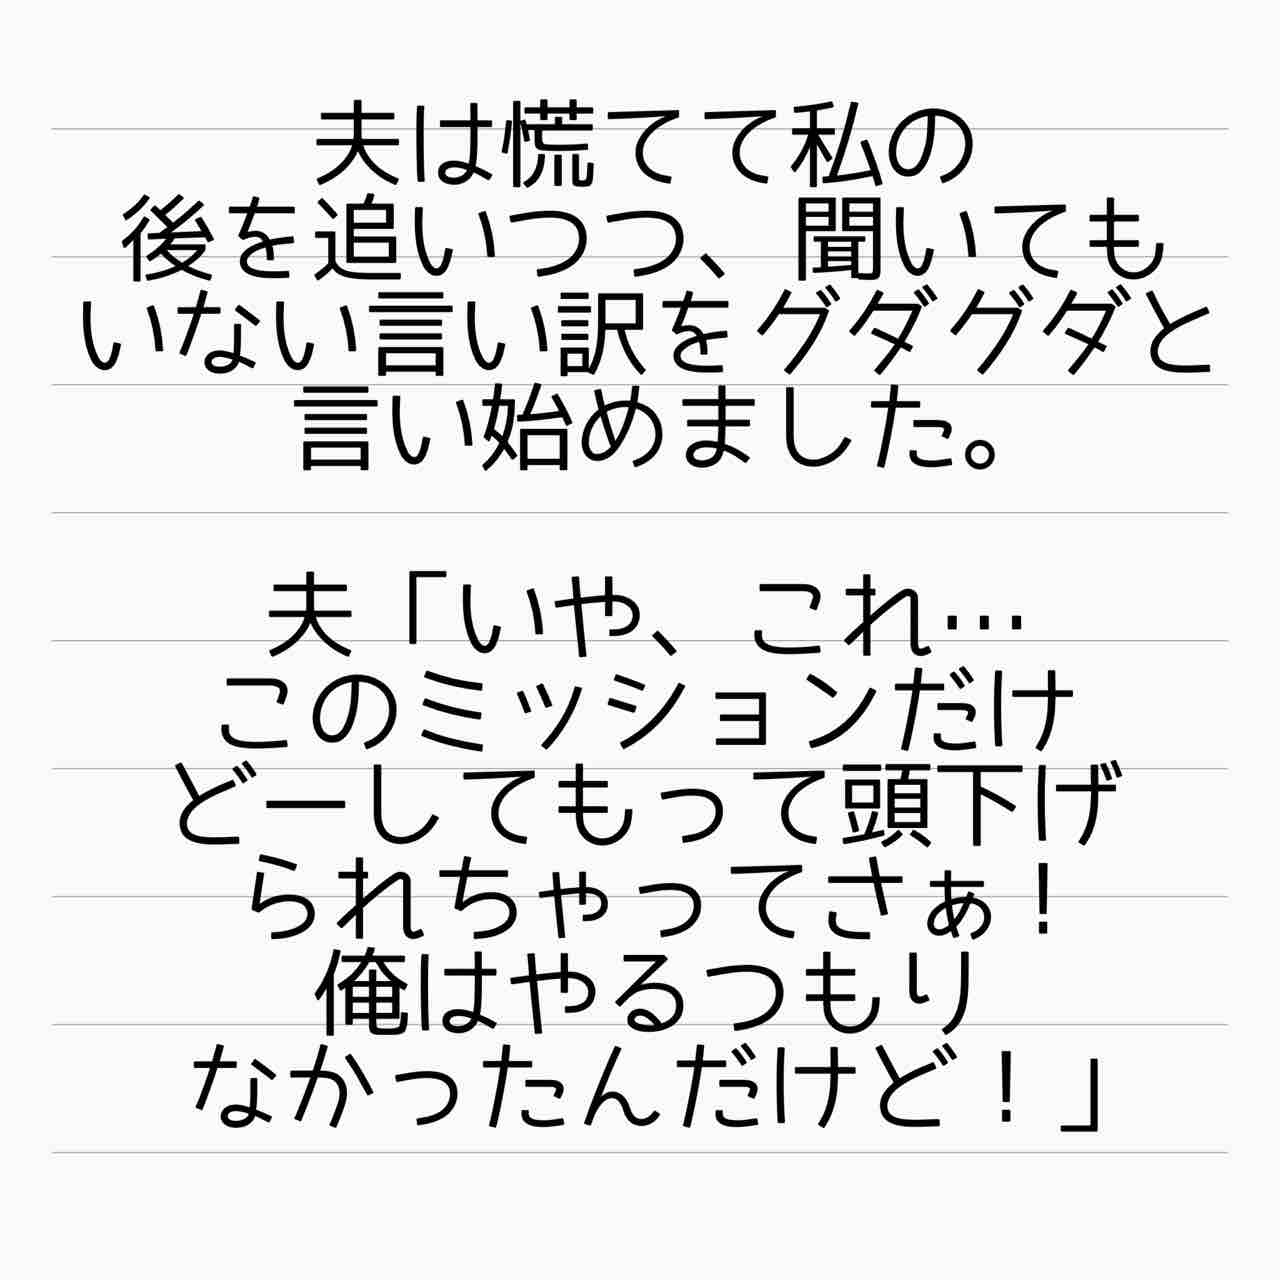 夫は慌てて私の
後を追いつつ、聞いても
いない言い訳をグダグダと
言い始めました。
夫「いや、これ…
このミッションだけ
どーしてもって頭下げ
られちゃってさぁ！
俺はやるつもり
なかったんだけど！」